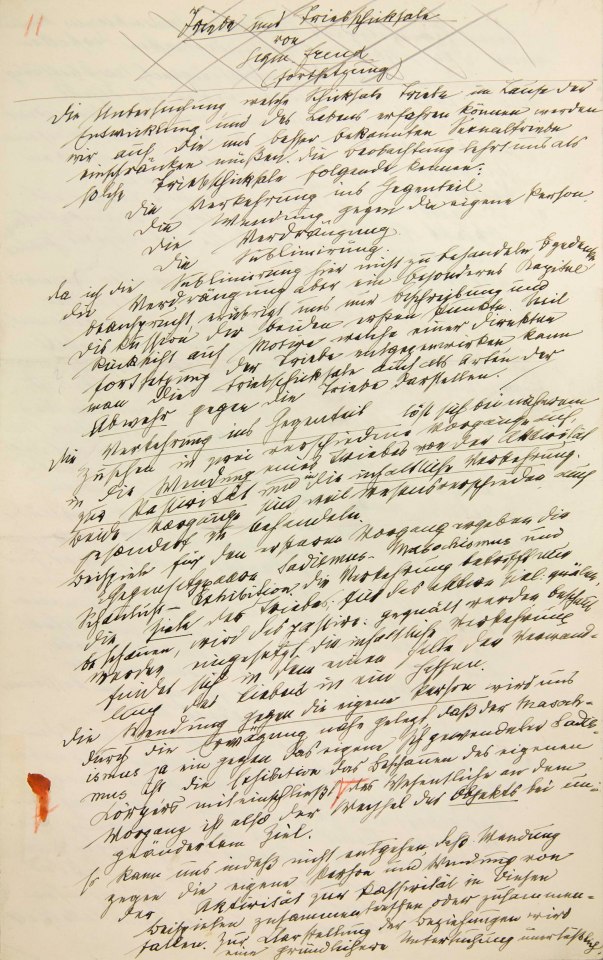 11
Triebe und Triebschicksale
von
Sigm Freud
(Fortsetzung)
Die Untersuchung welche Schicksale Triebe im Laufe der
Entwicklung und des Lebens erfahren können werden
wir auf die uns besser bekannten Sexualtriebe
einschränken müßen. Die Beobachtung lehrt uns als
solche Triebschicksale folgende kennen:
Die Verkehrung ins Gegenteil
Die Wendung gegen die eigene Person.
Die Verdrängung
Die Sublimirung.
Da ich die Sublimirung hier nicht zu behandeln gedenke
die Verdrängung aber ein besonderes Kapitel
beansprucht, erübrigt uns nur Beschreibung und
Diskussion der beiden ersten Punkte. Mit
Rücksicht auf Motive welche einer direkten
Fortsetzung der Triebe entgegenwirken kann
man die Triebschicksale auch als Arten der
Abwehr gegen die Triebe darstellen.
Die Verkehrung ins Gegenteil löst sich bei näherem
Zusehen in zwei verschiedene Vorgänge auf,
in die Wendung eines Triebes von der Aktivität
zur Passivität und in die inhaltliche Verkehrung.
Beide Vorgänge sind weil wesensverschieden auch
gesondert zu behandeln.
Beispiele für den ersteren Vorgang ergeben die
Gegensatzpaare Sadismus-Masochismus und
Schaulust-Exhibition. Die Verkehrung betrifft nur
die Ziele des Triebes; für das aktive Ziel: quälen,
beschauen, wird das passive: gequält werden beschaut
werden eingesetzt. Die inhaltliche Verkehrung
findet sich in dem einen Falle der Verwand-
lung des Liebens in ein Hassen.
Die Wendung gegen die eigene Person wird uns
durch die Erwägung nahe gelegt, daß der Masoch-
ismus ja ein gegen das eigene Ich gewendeter Sadis-
mus ist die Exhibition das Beschauen des eigenen
Körpers miteinschließt. Das Wesentliche an dem
Vorgang ist also der Wechsel des Objekts bei un-
geändertem Ziel.
Es kann uns indeß nicht entgehen, daß Wendung
gegen die eigene Person und Wendung von
der Aktivität zur Passivität in diesen
Beispielen zusammentreffen oder zusammen-
fallen. Zur Klarstellung der Beziehungen wird
eine gründlichere Untersuchung unerläßlich.